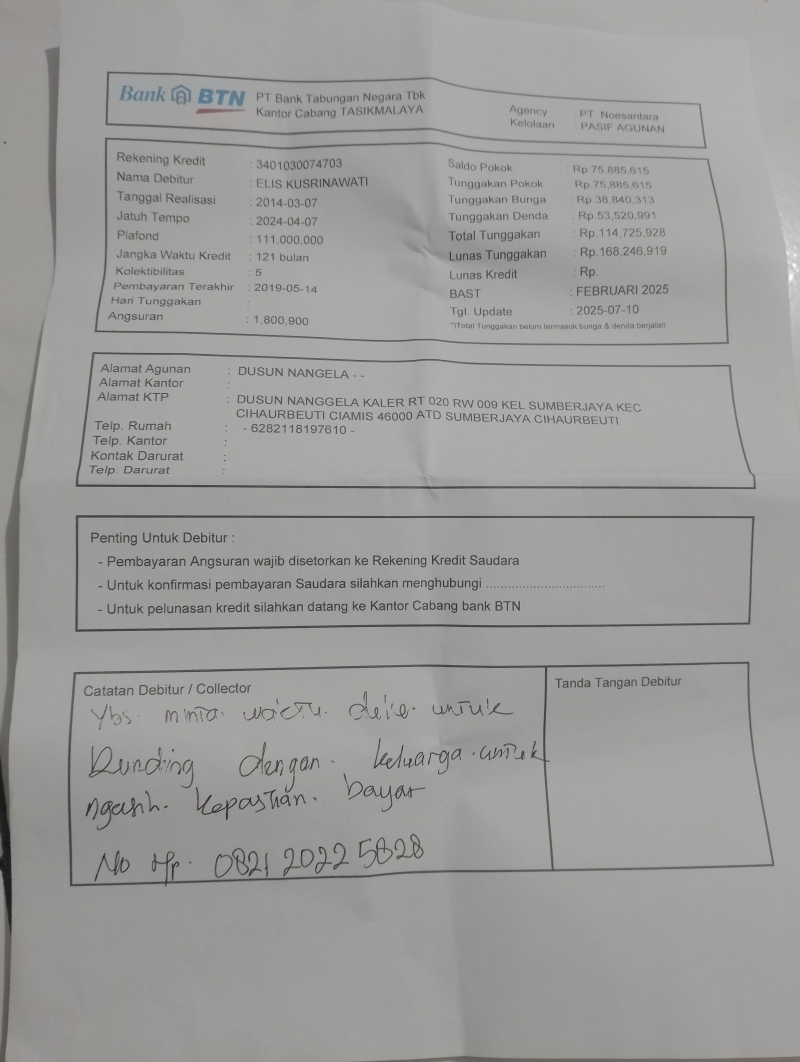 Bank BTN
PT Bank Tabungan Negara Tbk
Kantor Cabang TASIKMALAYA
Agency : PT. Noesantara
Kelolaan : PASIF AGUNAN
Rekening Kredit : 3401030074703
Nama Debitur : ELIS KUSRINAWATI
Tanggal Realisasi : 2014-03-07
Jatuh Tempo : 2024-04-07
Plafond : 111,000,000
Jangka Waktu Kredit : 121 bulan
Kolektibilitas : 5
Pembayaran Terakhir : 2019-05-14
Hari Tunggakan :
Angsuran : 1,800,900
Saldo Pokok : Rp 75,885,615
Tunggakan Pokok : Rp 75,885,615
Tunggakan Bunga : Rp 38,840,313
Tunggakan Denda : Rp.53,520,991
Total Tunggakan : Rp.114,725,928
Lunas Tunggakan : Rp.168,246,919
Lunas Kredit : Rp.
BAST : FEBRUARI 2025
Tgl. Update : 2025-07-10
*)Total Tunggakan belum termasuk bunga & denda berjalan
Alamat Agunan : DUSUN NANGELA - -
Alamat Kantor :
Alamat KTP : DUSUN NANGGELA KALER RT 020 RW 009 KEL SUMBERJAYA KEC
CIHAURBEUTI CIAMIS 46000 ATD SUMBERJAYA CIHAURBEUTI
Telp. Rumah : - 6282118197610 -
Telp. Kantor :
Kontak Darurat :
Telp. Darurat :
Penting Untuk Debitur :
- Pembayaran Angsuran wajib disetorkan ke Rekening Kredit Saudara
- Untuk konfirmasi pembayaran Saudara silahkan menghubungi ................................
- Untuk pelunasan kredit silahkan datang ke Kantor Cabang bank BTN
Catatan Debitur / Collector
Ybs. minta waktu untuk
Runding dengan keluarga untuk
ngasih kepastian bayar
No Hp. 0821 2022 5828
Tanda Tangan Debitur